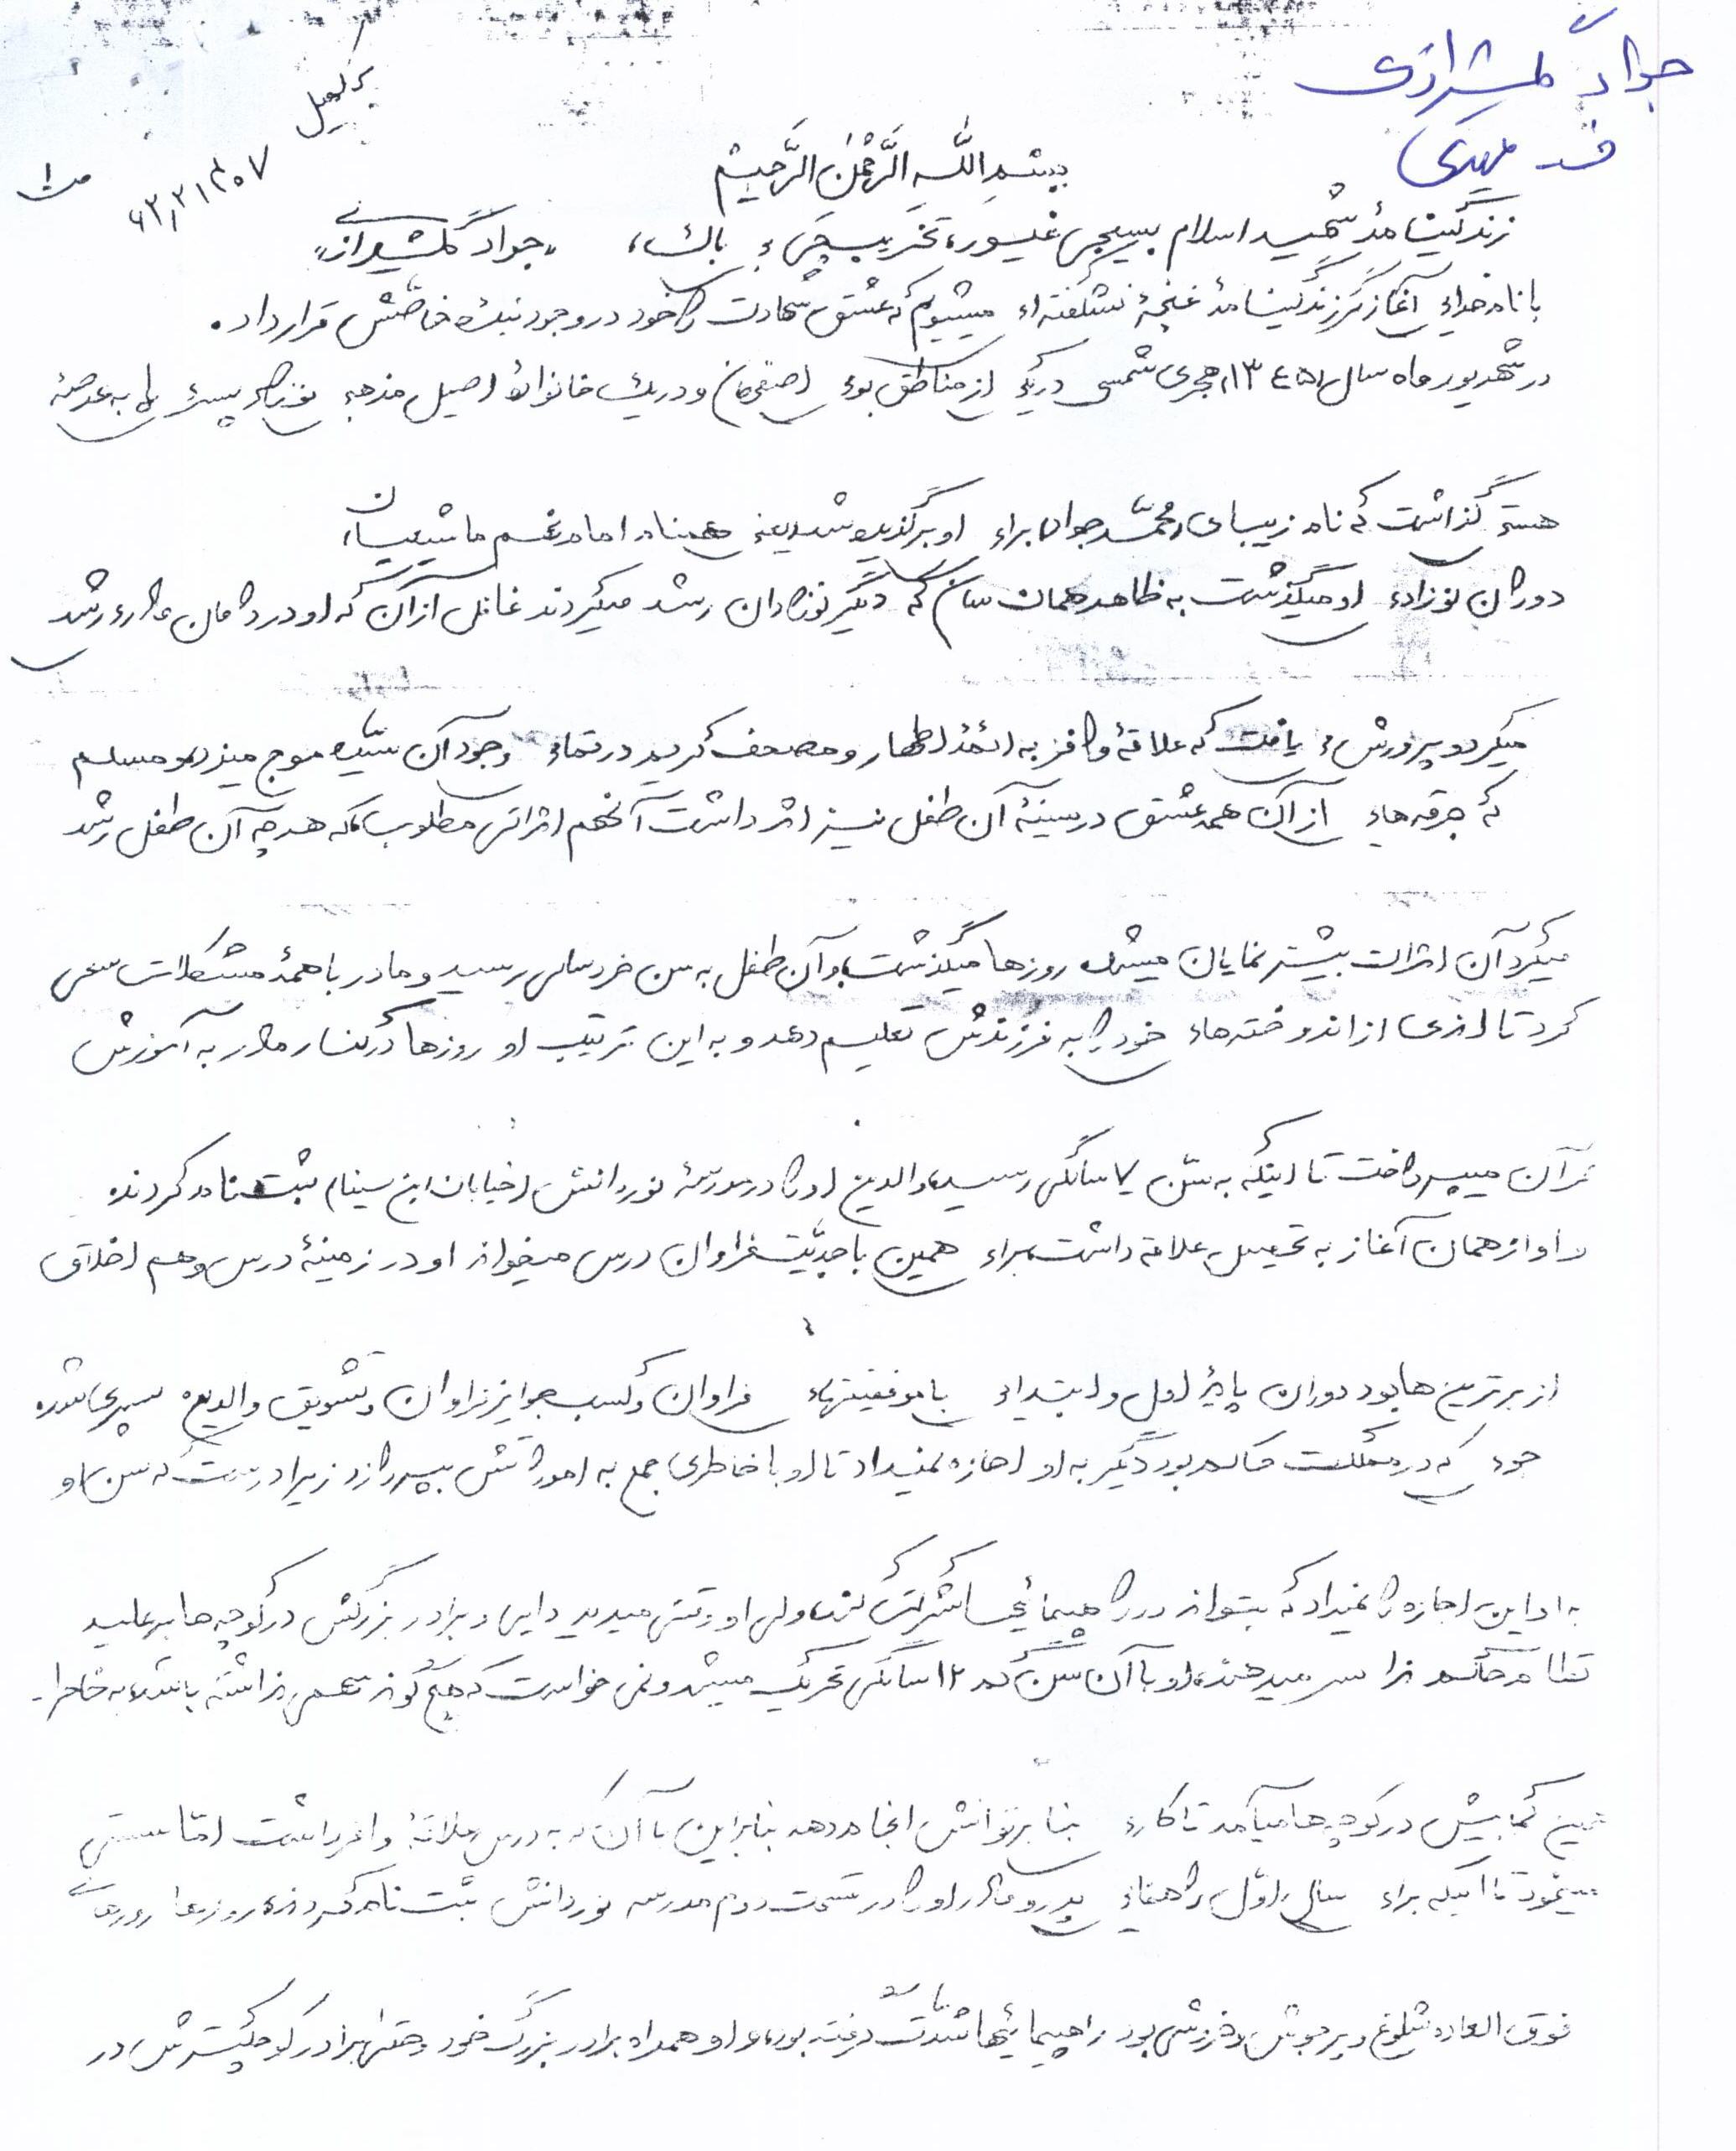 جواد گلشیرازی
ف مهدی
تکمیل
۶۲,۲۱۳۰۷
بِسْمِ اللَّهِ الرَّحْمٰنِ الرَّحیمْ
زندگینامهٔ شهید اسلام بسیجی غیور، تخریبچی بی باک، «جواد گلشیرازی»
با نام خدای آغازگر زندگینامهٔ غنچهٔ نشکفته‌ای میشویم که عشق شهادت را خود در وجود بندهٔ خاصّش قرار داد.
در شهریور ماه سال ۱۳۴۵ هجری شمسی در یکی از مناطق (اصفهان) و در یک خانوادهٔ اصیل مذهبی نوزاد پسری پا به عرصهٔ
هستی گذاشت که نام زیبای محمّد جواد برای او برگزیده شد یعنی همنام امام نهم ما شیعیان،
دوران نوزادی او میگذشت به ظاهر همان سان که دیگر نوزادان رشد میکردند غافل از آن که او در دامان مادری رشد
میکرد و پرورش می یافت که علاقهٔ وافر به ائمهٔ اطهار و مصحف کریم در تمام وجود آن سیّده موج میزد و مسلم
که جرقه های از آن همه عشق در سینهٔ آن طفل نیز اثر داشت آنهم اثراتی مطلوب که هر چه آن طفل رشد
میکرد آن اثرات بیشتر نمایان میشد، روزها میگذشت و آن طفل به سن خردسالی رسید و مادر با همهٔ مشکلات سعی
کرد تا اندی از اندوخته های خود را به فرزندش تعلیم دهد و به این ترتیب او روزها در کنار مادر به آموزش
قرآن میپرداخت تا اینکه به سّن ۷ سالگی رسید، والدین او را در مدرسهٔ نور دانش (خیابان ابن سینا) ثبت نام کردند
و او از همان آغاز به تحصیل علاقه داشت برای همین با جدیّت فراوان درس میخواند او در زمینهٔ درس و هم اخلاق
از برترین ها بود دوران پایهٔ اول و ابتدایی با موفقیتهای فراوان و کسب جوایز فراوان و تشویق والدین سپری شد
جوی که در مملکت حاکم بود دیگر به او اجازه نمیداد تا او با خاطری جمع به اموراتش بپردازد زیرا درست که سن او
به او این اجازه را نمیداد که بتواند در راهپیمائیها شرکت کند، ولی او وقتی میدید دایی و برادر بزرگش در کوچه ها بر علیه
نظام حاکم ندا سر میدهند، او با آن سن کم ۱۲ سالگی تحریک میشد و نمی خواست که هیچ گونه سهمی نداشته باشد، به خاطر
همین کمابیش در کوچه ها میآمد تا کاری بنا بر توانش انجام دهد بنابراین با آن که به درس علاقهٔ وافر داشت امّا سستی
مینمود تا اینکه برای سال اوّل راهنمایی پدر و مادر او را در قسمت دوم مدرسه نور دانش ثبت نام کردند، روزها روزهای
فوق العاده شلوغ و پر جوش و خروشی بود راهپیمائیها شدّت گرفته بود، و او همراه برادر بزرگ خود و حتی برادر کوچکترش در